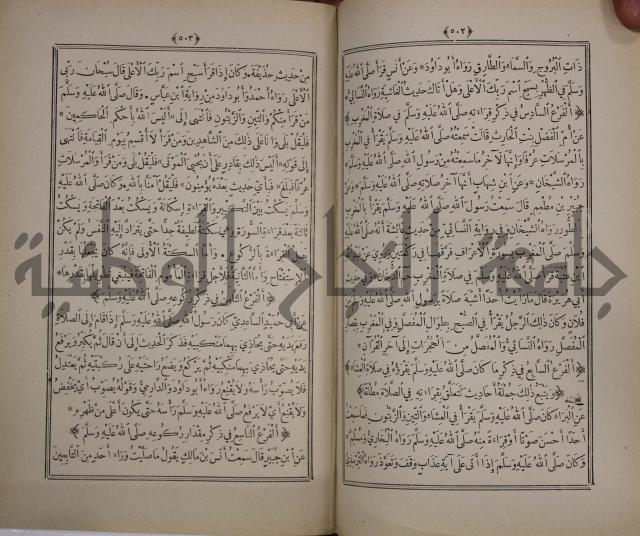 ﴿٥٠٢﴾
ذَاتِ الْبُرُوجِ وَالسَّمَاءِ وَالطَّارِقِ رَوَاهُ أَبُو دَاوُدَ * وَعَنْ أَنَسٍ قَرَأَ صَلَّى اللهُ عَلَيْهِ
وَسَلَّمَ فِي الظُّهْرِ بِسَبِّحِ اسْمَ رَبِّكَ الْأَعْلَى وَهَلْ أَتَاكَ حَدِيثُ الْغَاشِيَةِ رَوَاهُ النَّسَائِيُّ *
﴿ اَلْفَرْعُ السَّادِسُ فِي ذِكْرِ قِرَاءَتِهِ صَلَّى اللهُ عَلَيْهِ وَسَلَّمَ فِي صَلَاةِ الْمَغْرِبِ ﴾
عَنْ أُمِّ الْفَضْلِ بِنْتِ الْحَارِثِ قَالَتْ سَمِعْتُهُ صَلَّى اللهُ عَلَيْهِ وَسَلَّمَ يَقْرَأُ فِي الْمَغْرِبِ
بِالْمُرْسَلَاتِ عُرْفًا وَإِنَّهَا لَآخِرُ مَا سَمِعْتُهُ مِنْ رَسُولِ اللهِ صَلَّى اللهُ عَلَيْهِ وَسَلَّمَ
رَوَاهُ الشَّيْخَانِ * وَعَنِ ابْنِ شِهَابٍ أَنَّهَا آخِرُ صَلَاتِهِ صَلَّى اللهُ عَلَيْهِ وَسَلَّمَ * وَعَنْ
جُبَيْرِ بْنِ مُطْعِمٍ قَالَ سَمِعْتُ رَسُولَ اللهِ صَلَّى اللهُ عَلَيْهِ وَسَلَّمَ يَقْرَأُ بِالْمَغْرِبِ
بِالطُّورِ رَوَاهُ الشَّيْخَانِ وَفِي رِوَايَةِ النَّسَائِيِّ مِنْ حَدِيثِ عَائِشَةَ أَنَّهُ صَلَّى اللهُ عَلَيْهِ
وَسَلَّمَ صَلَّى الْمَغْرِبَ بِسُورَةِ الْأَعْرَافِ فَرَّقَهَا فِي رَكْعَتَيْنِ وَرَوَى
صَلَّى اللهُ عَلَيْهِ وَسَلَّمَ فِي صَلَاةِ الْمَغْرِبِ وَفِي حَدِيثِ
أَبِي هُرَيْرَةَ قَالَ مَا رَأَيْتُ أَحَدًا أَشْبَهَ صَلَاةً بِرَسُولِ اللهِ صَلَّى اللهُ عَلَيْهِ وَسَلَّمَ مِنْ
فُلَانٍ وَكَانَ ذَلِكَ الرَّجُلُ يَقْرَأُ فِي الصُّبْحِ بِطِوَالِ الْمُفَصَّلِ وَفِي الْمَغْرِبِ بِقِصَارِ
الْمُفَصَّلِ رَوَاهُ النَّسَائِيُّ * وَالْمُفَصَّلُ مِنَ الْحُجُرَاتِ إِلَى آخِرِ الْقُرْآنِ *
﴿ اَلْفَرْعُ السَّابِعُ فِي ذِكْرِ مَا كَانَ صَلَّى اللهُ عَلَيْهِ وَسَلَّمَ يَقْرَؤُهُ فِي صَلَاةِ الْعِشَاءِ ﴾
﴿ وَيَتْبَعُ ذَلِكَ جُمْلَةُ أَحَادِيثَ تَتَعَلَّقُ بِقِرَاءَتِهِ فِي الصَّلَاةِ مُطْلَقًا ﴾
عَنِ الْبَرَاءِ كَانَ صَلَّى اللهُ عَلَيْهِ وَسَلَّمَ يَقْرَأُ فِي الْعِشَاءِ وَالتِّينِ وَالزَّيْتُونِ فَمَا سَمِعْتُ
أَحَدًا أَحْسَنَ صَوْتًا أَوْ قِرَاءَةً مِنْهُ صَلَّى اللهُ عَلَيْهِ وَسَلَّمَ رَوَاهُ الْبُخَارِيُّ وَمُسْلِمٌ *
وَكَانَ صَلَّى اللهُ عَلَيْهِ وَسَلَّمَ إِذَا أَتَى عَلَى آيَةِ عَذَابٍ وَقَفَ وَتَعَوَّذَ رَوَاهُ التِّرْمِذِيُّ
﴿٥٠٣﴾
مِنْ حَدِيثِ حُذَيْفَةَ * وَكَانَ إِذَا قَرَأَ سَبِّحِ اسْمَ رَبِّكَ الْأَعْلَى قَالَ سُبْحَانَ رَبِّيَ
الْأَعْلَى رَوَاهُ أَحْمَدُ وَأَبُو دَاوُدَ مِنْ رِوَايَةِ ابْنِ عَبَّاسٍ * وَقَالَ صَلَّى اللهُ عَلَيْهِ وَسَلَّمَ
مَنْ قَرَأَ مِنْكُمْ وَالتِّينِ وَالزَّيْتُونِ فَانْتَهَى إِلَى * أَلَيْسَ اللهُ بِأَحْكَمِ الْحَاكِمِينَ *
فَلْيَقُلْ بَلَى وَأَنَا عَلَى ذَلِكَ مِنَ الشَّاهِدِينَ وَمَنْ قَرَأَ لَا أُقْسِمُ بِيَوْمِ الْقِيَامَةِ فَانْتَهَى
إِلَى قَوْلِهِ * أَلَيْسَ ذَلِكَ بِقَادِرٍ عَلَى أَنْ يُحْيِيَ الْمَوْتَى * فَلْيَقُلْ بَلَى وَمَنْ قَرَأَ وَالْمُرْسَلَاتِ
عُرْفًا فَبَلَغَ * فَبِأَيِّ حَدِيثٍ بَعْدَهُ يُؤْمِنُونَ * فَلْيَقُلْ آمَنَّا بِاللهِ * وَكَانَ صَلَّى اللهُ عَلَيْهِ
وَسَلَّمَ يَسْكُتُ بَيْنَ التَّكْبِيرِ وَالْقِرَاءَةِ إِسْكَاتَةً وَيَسْكُتُ بَعْدَ الْفَاتِحَةِ وَيَسْكُتُ
ثَالِثَةً بَعْدَ قِرَاءَةِ السُّورَةِ وَهِيَ سَكْتَةٌ لَطِيفَةٌ جِدًّا حَتَّى يَتَرَادَّ إِلَيْهِ النَّفَسُ وَلَمْ يَكُنْ
يَصِلُ الْقِرَاءَةَ بِالرُّكُوعِ * وَأَمَّا السَّكْتَةُ الْأُولَى فَإِنَّهُ كَانَ يَجْعَلُهَا بِقَدْرِ
الْاِسْتِفْتَاحِ وَأَمَّا الثَّانِيَةُ فَلِأَجْلِ قِرَاءَةِ الْمَأْمُومِ الْفَاتِحَةَ فَيَنْبَغِي تَطْوِيلُهَا بِقَدْرِهَا *
﴿ اَلْفَرْعُ الثَّامِنُ فِي ذِكْرِ رُكُوعِهِ صَلَّى اللهُ عَلَيْهِ وَسَلَّمَ ﴾
عَنْ أَبِي حُمَيْدٍ السَّاعِدِيِّ كَانَ رَسُولُ اللهِ صَلَّى اللهُ عَلَيْهِ وَسَلَّمَ إِذَا قَامَ إِلَى الصَّلَاةِ
رَفَعَ يَدَيْهِ حَتَّى يُحَاذِيَ بِهِمَا مَنْكِبَيْهِ فَذَكَرَ الْحَدِيثَ إِلَى أَنْ قَالَ ثُمَّ يُكَبِّرُ وَيَرْفَعُ
يَدَيْهِ حَتَّى يُحَاذِيَ بِهِمَا مَنْكِبَيْهِ ثُمَّ يَرْكَعُ وَيَضَعُ رَاحَتَيْهِ عَلَى رُكْبَتَيْهِ ثُمَّ يَعْتَدِلُ
فَلَا يُصَوِّبُ رَأْسَهُ وَلَا يُقْنِعُ رَوَاهُ أَبُو دَاوُدَ وَالدَّارِمِيُّ * وَقَوْلُهُ يُصَوِّبُ أَيْ يَخْفِضُ
وَلَا يُقْنِعُ أَيْ لَا يَرْفَعُ صَلَّى اللهُ عَلَيْهِ وَسَلَّمَ رَأْسَهُ حَتَّى يَكُونَ أَعْلَى مِنْ ظَهْرِهِ *
﴿ اَلْفَرْعُ التَّاسِعُ فِي ذِكْرِ مِقْدَارِ رُكُوعِهِ صَلَّى اللهُ عَلَيْهِ وَسَلَّمَ ﴾
عَنِ ابْنِ جُبَيْرٍ قَالَ سَمِعْتُ أَنَسَ بْنَ مَالِكٍ يَقُولُ مَا صَلَّيْتُ وَرَاءَ أَحَدٍ مِنَ التَّابِعِينَ
جامعة النجاح الوطنية